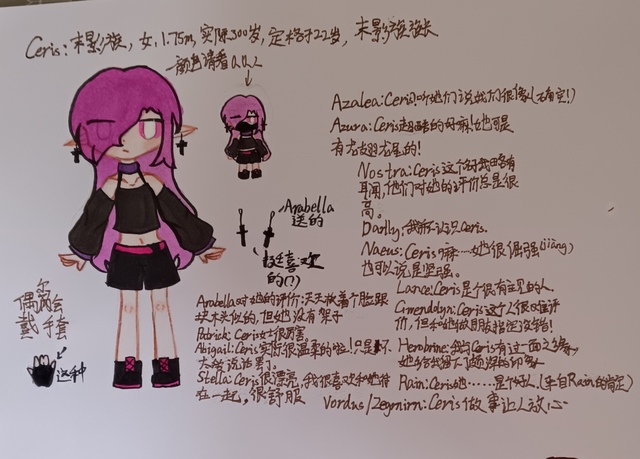 Ceris：末影族，女，1.75m，实际300岁，定格于22岁，末影族族长
颜色请看Q Q 2
Arabella
送的
挺喜欢
的(?)
偶尔会
戴手套
这种
Azalea:Ceris!听她们说我们很像!(有空!)
Azura:Ceris超酷的好嘛!她可是
有龙翅龙尾的!
Nostra:Ceris这个名我略有
耳闻,他们对她的评价总是很
高。
我不认识Ceris.
Naeus:Ceris嘛…她很倔强(jiàng)
也可以说是坚强。
Lance:Ceris是个很有主见的人.
Ceris这个人很难评
价,但和她做朋友指定没错!
我与Ceris有过一面之缘,
她给我留下了颇深的印象
Rain:Ceris她……是个好人(来自Rain的肯定)
Vordus/Zegnirn:Ceris做事让人放心
Arabella对她的评价:天天板着个脸跟
块木头似的,但她没有架子
Patrick:Ceris女士很厉害
Abigail:Ceris实际很温柔的啦!只是不
太敢说话罢了
Stella:Ceris很漂亮,我很喜欢和她待
在一起,很舒服